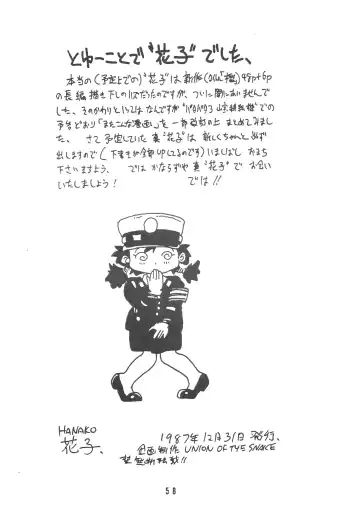 とゆーことで“花子”でした、
本当の(予定上での)“花子”は新作
の長編描き下しのハズだったのですが、ついに間にあいませんで
した、そのかわりといってはなんですが
予告どおり「またこんな漫画」を一部 の上 まとめてみまし
た。 さて予定していた真“花子”は 新しくちゃんと必ず
出しますので(下書きが全部UPしてるのです)いましばし おまち
下さいますよう、 では かならずや真“花子”で お会い
いたしましょう! では!!
HANAKO
花子、
1987年12月31日 発行、
企画制作 UNION OF THE SNAKE
禁無断転載!!
58